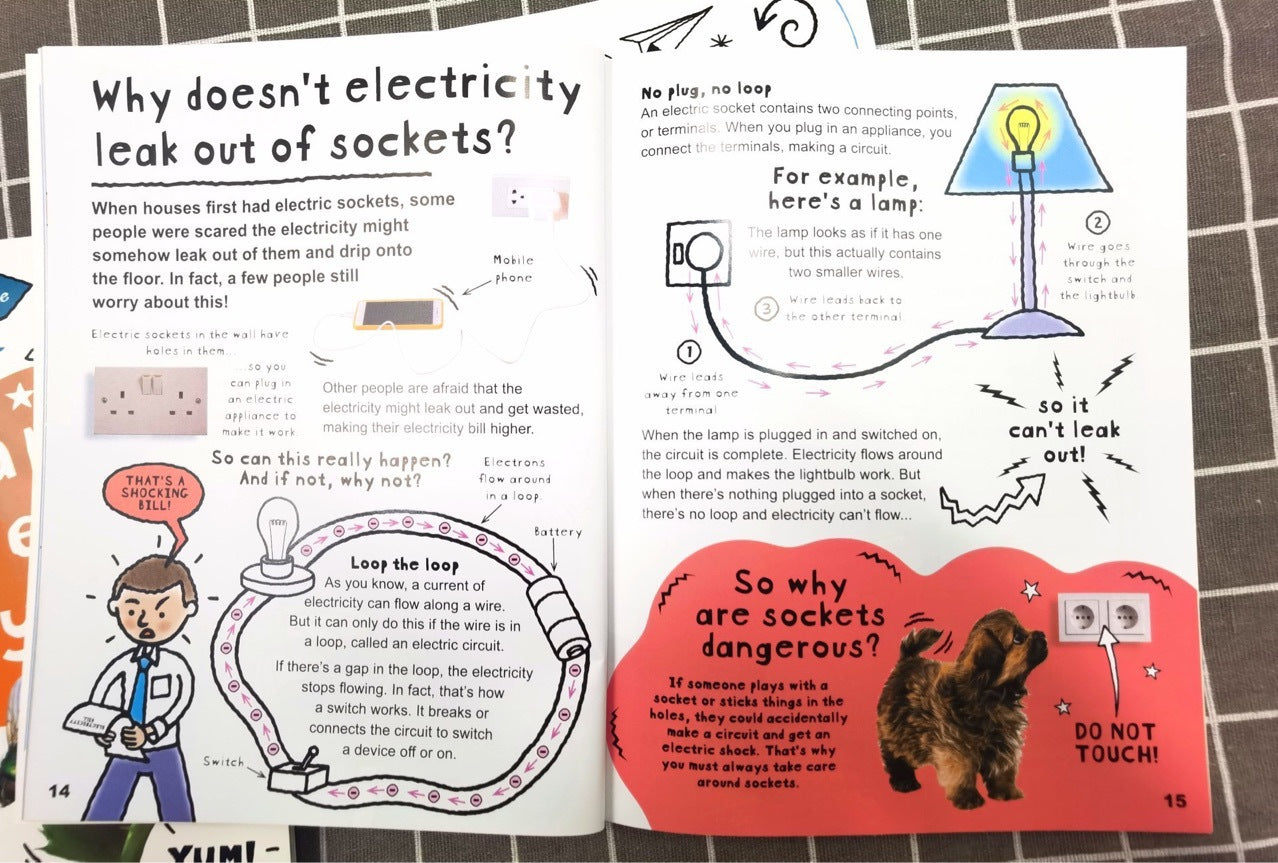 Why doesn't electricity
leak out of sockets?
When houses first had electric sockets, some
people were scared the electricity might
somehow leak out of them and drip onto
the floor. In fact, a few people still
worry about this!
Mobile
phone
Electric sockets in the wall have
holes in them...
...so you
can plug in
an electric
appliance to
make it work.
Other people are afraid that the
electricity might leak out and get wasted,
making their electricity bill higher.
So can this really happen?
And if not, why not?
THAT'S A
SHOCKING
BILL!
ELECTRICITY
BILL
Electrons
flow around
in a loop.
Battery
Loop the loop
As you know, a current of
electricity can flow along a wire.
But it can only do this if the wire is in
a loop, called an electric circuit.
If there's a gap in the loop, the electricity
stops flowing. In fact, that's how
a switch works. It breaks or
connects the circuit to switch
a device off or on.
Switch
14
No plug, no loop
An electric socket contains two connecting points,
or terminals. When you plug in an appliance, you
connect the terminals, making a circuit.
For example,
here's a lamp:
The lamp looks as if it has one
wire, but this actually contains
two smaller wires.
1
Wire leads
away from one
terminal
2
Wire goes
through the
switch and
the lightbulb.
3
Wire leads back to
the other terminal.
When the lamp is plugged in and switched on,
the circuit is complete. Electricity flows around
the loop and makes the lightbulb work. But
when there's nothing plugged into a socket,
there's no loop and electricity can't flow...
so it
can't leak
out!
So why
are sockets
dangerous?
If someone plays with a
socket or sticks things in the
holes, they could accidentally
make a circuit and get an
electric shock. That's why
you must always take care
around sockets.
DO NOT
TOUCH!
15
e
e
y
YUM! -